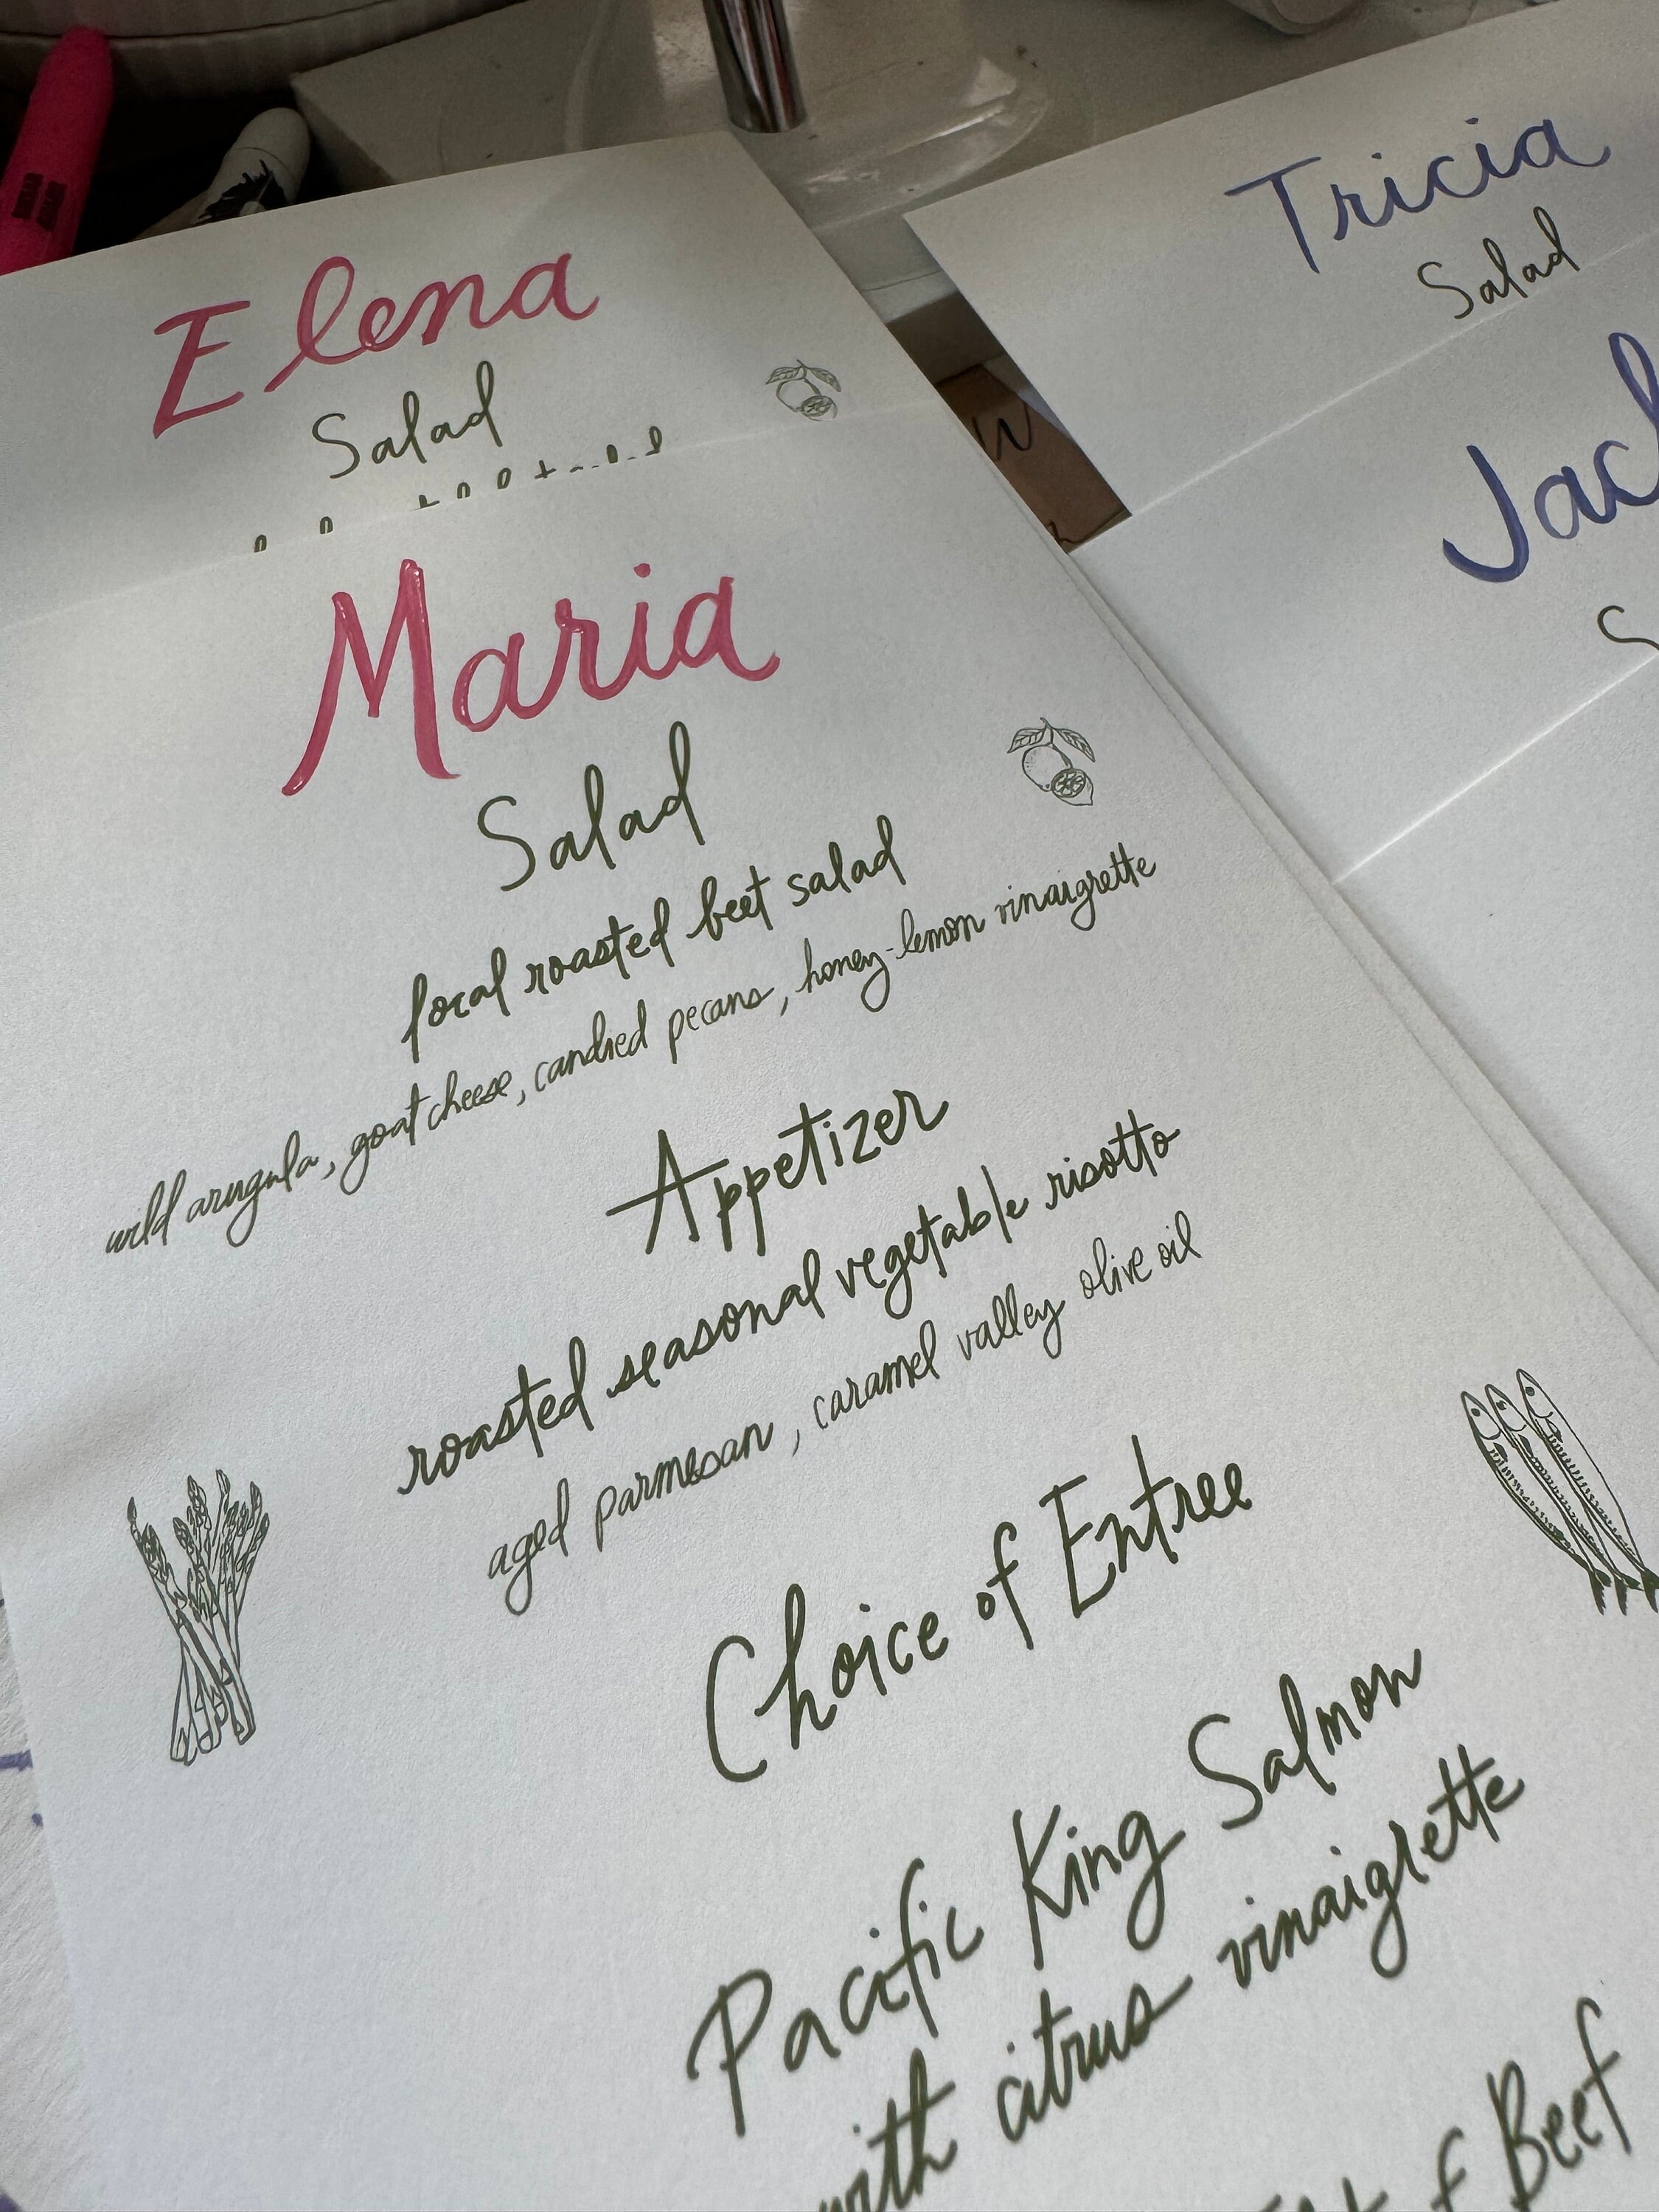 Elena
Salad
Maria
Salad
local roasted beet salad
wild arugula, goat cheese, candied pecans, honey-lemon vinaigrette
Appetizer
roasted seasonal vegetable risotto
aged parmesan, caramel valley olive oil
Choice of Entree
Pacific King Salmon
with citrus vinaigrette
of Beef
Tricia
Salad